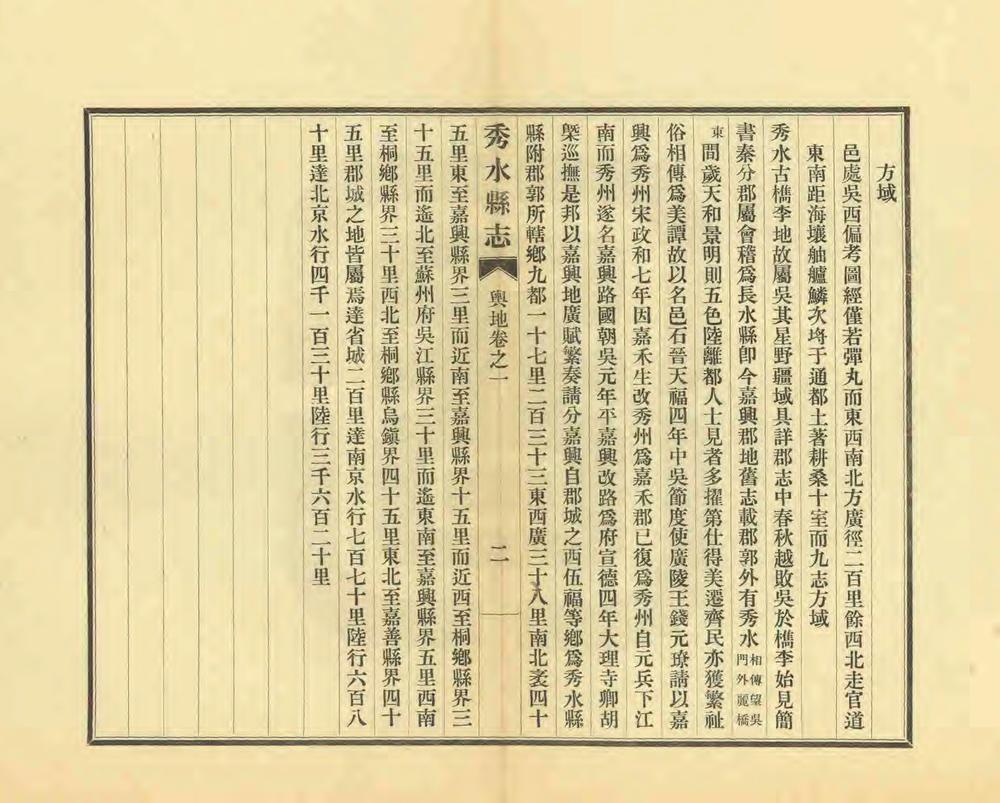 方域
邑處吳西偏考圖經僅若彈丸而東西南北方廣徑二百里餘西北走官道
東南距海壤舳艫鱗次埒于通都土著耕桑十室而九志方域
秀水古檇李地故屬吳其星野疆域具詳郡志中春秋越敗吳於檇李始見簡
書秦分郡屬會稽爲長水縣卽今嘉興郡地舊志載郡郭外有秀水相傳望吳門外麗橋
東間歲天和景明則五色陸離都人士見者多擢第仕得美遷齊民亦獲繁祉
俗相傳爲美譚故以名邑石晉天福四年中吳節度使廣陵王錢元璙請以嘉
興爲秀州宋政和七年因嘉禾生改秀州爲嘉禾郡已復爲秀州自元兵下江
南而秀州遂名嘉興路國朝吳元年平嘉興改路爲府宣德四年大理寺卿胡
槩巡撫是邦以嘉興地廣賦繁奏請分嘉興自郡城之西伍福等鄉爲秀水縣
縣附郡郭所轄鄉九都一十七里二百三十三東西廣三十八里南北袤四十
秀水縣志 輿地卷之一 二
五里東至嘉興縣界三里而近南至嘉興縣界十五里而近西至桐鄉縣界三
十五里而遙北至蘇州府吳江縣界三十里而遙東南至嘉興縣界五里西南
至桐鄉縣界三十里西北至桐鄉縣烏鎭界四十五里東北至嘉善縣界四十
五里郡城之地皆屬焉達省城二百里達南京水行七百七十里陸行六百八
十里達北京水行四千一百三十里陸行三千六百二十里